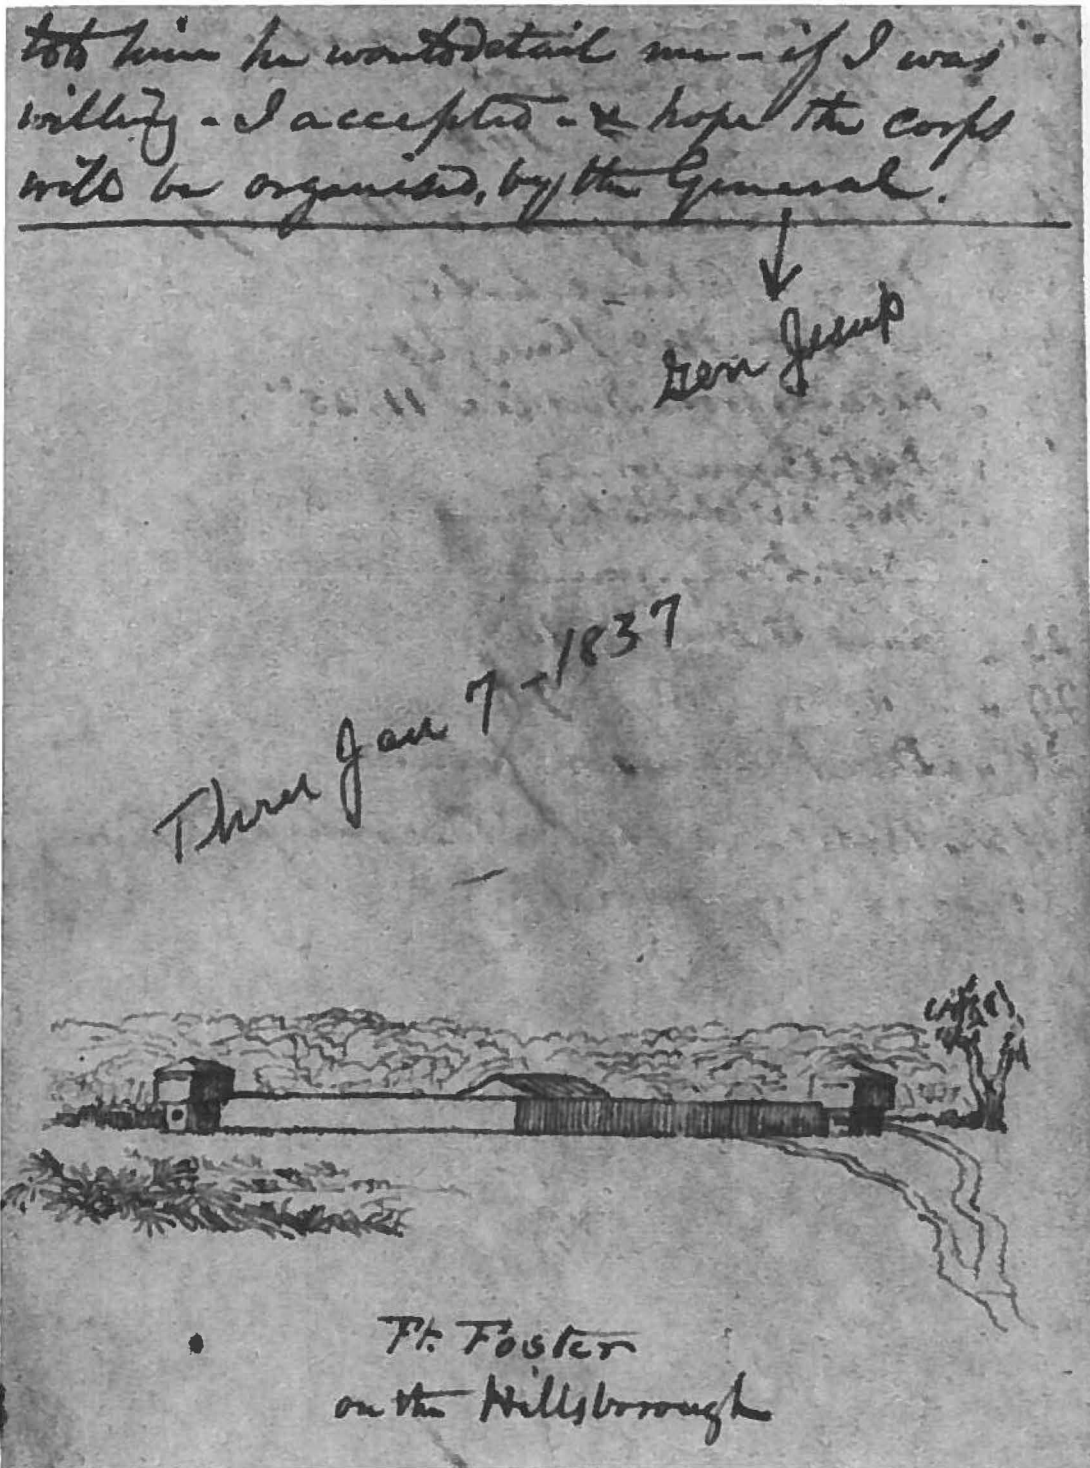 him he wants to detail me - if I was
willing - I accepted - & hope the corps
will be organised, by the General.
Gen Jesup
Thru Jan 7 - 1837
Ft. Foster
on the Hillsborough